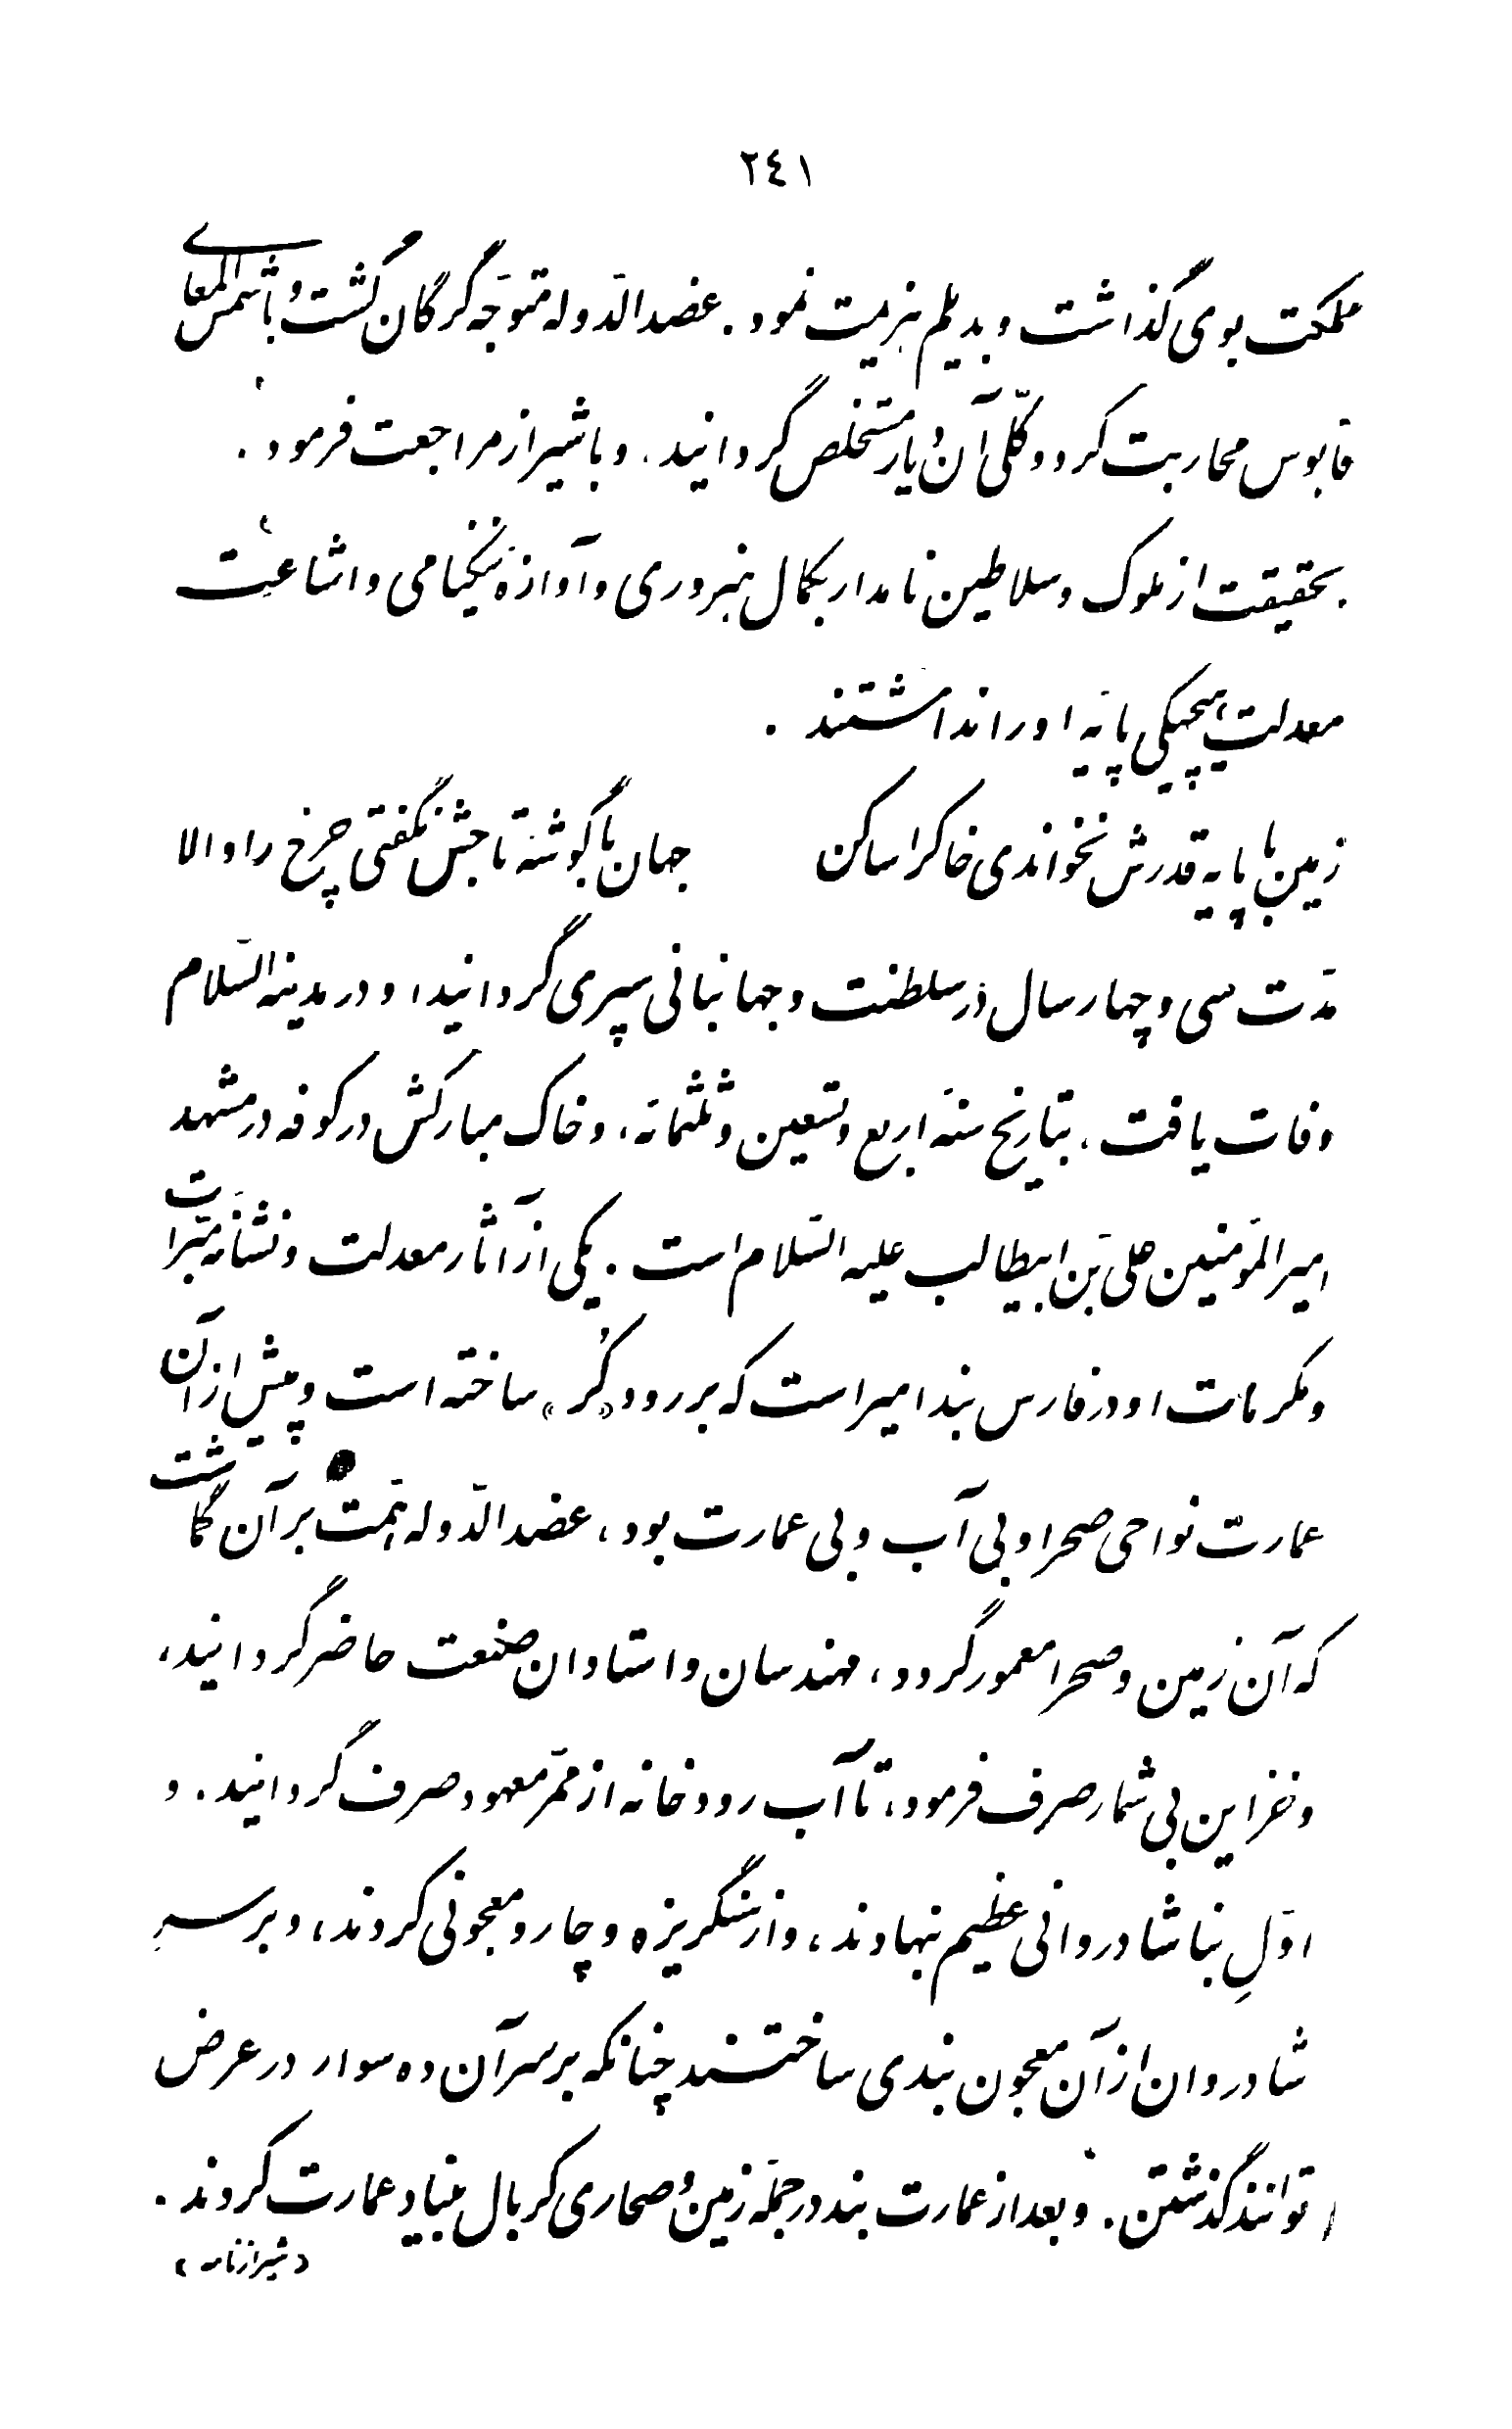 ٢٤١
مملکت بوی گذاشت و بدیلم هزیمت نمود. عضدالدّوله متوجّه گرگان گشت و با شمس المعالی
قابوس محاربت کرد و کلّی آن دیار مستخلص گردانید. و با شیراز مراجعت فرمود.
بحقیقت از ملوک و سلاطین نامدار بکمال هنروری و آوازهٔ نیکنامی و اشاعت
معدلت، هیچیکی پایهٔ او را نداشتند.
زمین با پایه قدرش نخواندی خاک را ساکن جهان با گوشهٔ تاجش نگفتی چرخ را والا
مدّت سی و چهار سال در سلطنت و جهانبانی سپری گردانید، و در مدینة السّلام
وفات یافت، بتاریخ سنهٔ اربع و تسعین و ثلثمائه، و خاک مبارکش در کوفه در مشهد
امیرالمؤمنین علی بن ابیطالب علیه السّلام است. یکی از آثار معدلت و نشانهٔ مبرّات
و مکرمات او در فارس بند امیر است که بر رود «کُر» ساخته است و پیش از آن
عمارت نواحی صحرا و بی آب و بی عمارت بود، عضدالدّوله همّت بر آن گماشت
که آن زمین و صحرا معمور گردد، مهندسان و استادان صنعت حاضر گردانید،
و خزاین بی شمار صرف فرمود، تا آب رودخانه از ممّر معهود صرف گردانید. و
اوّلِ بنا شادروانی عظیم بنهادند، و از سنگریزه و چارو معجونی کردند، و بر سرِ
شادروان از آن معجون بندی ساختند چنانکه بر سر آن ده سوار در عرض
توانند گذشتن. و بعد از عمارت بند در جملهٔ زمین و صحاری کربال بنیاد عمارت کردند.
(شیرازنامه)